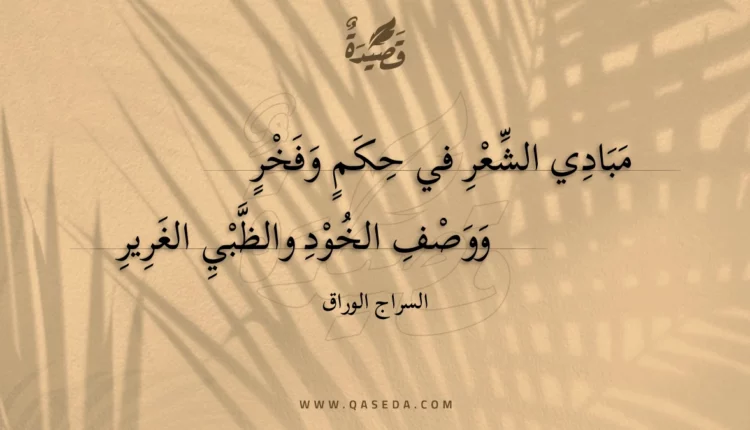 قَصِيْدَةٌ
مَبَادِي الشِّعْرِ في حِكَمٍ وَفَخْرٍ
وَوَصْفِ الخُوْدِ والظَّبْيِ الغَرِيرِ
السراج الوراق
WWW.QASEDA.COM